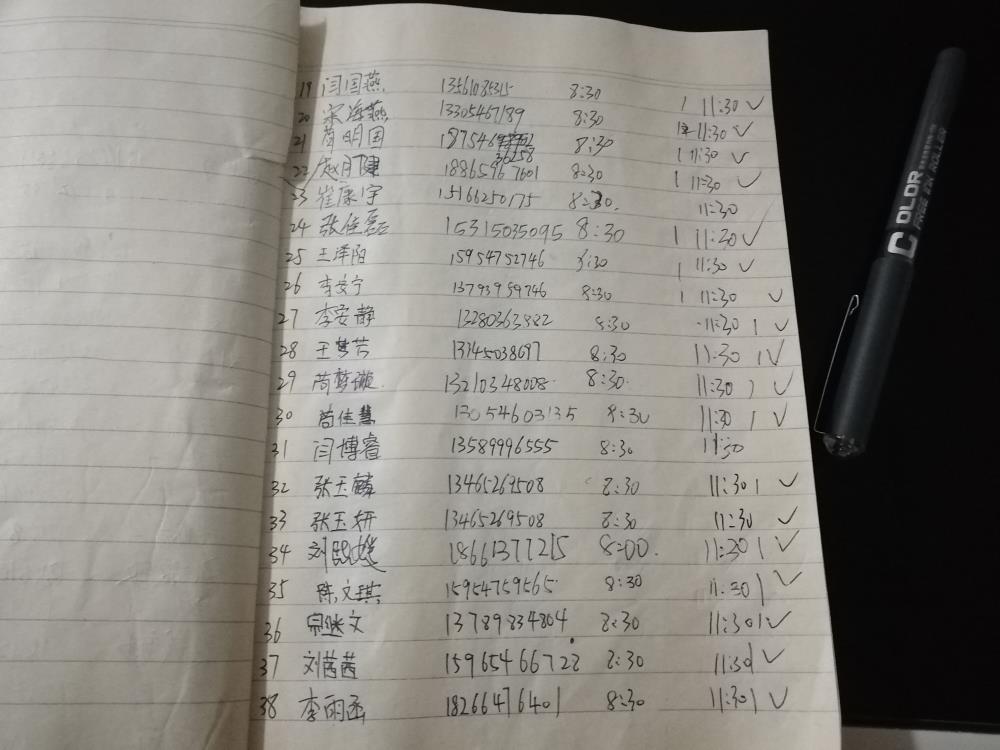 19 闫国燕 13561035315 8:30 1 11:30 ✓
20 宋海燕 13305467189 8:30 11:30 ✓
21 苘明国 1875468 8:30 1 11:30 ✓
36258
22 赵月健 18865967601 8:30 1 11:30 ✓
23 崔康宇 15166250175 8:30. 11:30
24 张佳磊 15315035095 8:30 1 11:30 ✓
25 王泽阳 15954752746 8:30 1 11:30 ✓
26 李安宁 13793959746 8:30 1 11:30 ✓
27 李安静 13280363882 8:30 11:30 1 ✓
28 王梦芳 13345038697 8:30 11:30 1 ✓
29 苘梦璇 13210348008 8:30 11:30 1 ✓
30 苘佳慧 13054603135 8:30 11:30 1 ✓
31 闫博睿 13589996555 8:30 11:30
32 张玉麟 13465269508 8:30 11:30 1 ✓
33 张玉妍 13465269508 8:30 11:30 ✓
34 刘 18661377215 8:00. 11:30 1 ✓
35 陈文琪 15954759565 8:30 11:30 1 ✓
36 宗继文 13789834804 8:30 11:30 1 ✓
37 刘茜茜 15965466722 8:30 11:30 1 ✓
38 李雨函 18266476401 8:30 11:30 1 ✓
COLOR
FREE EN ROLLER